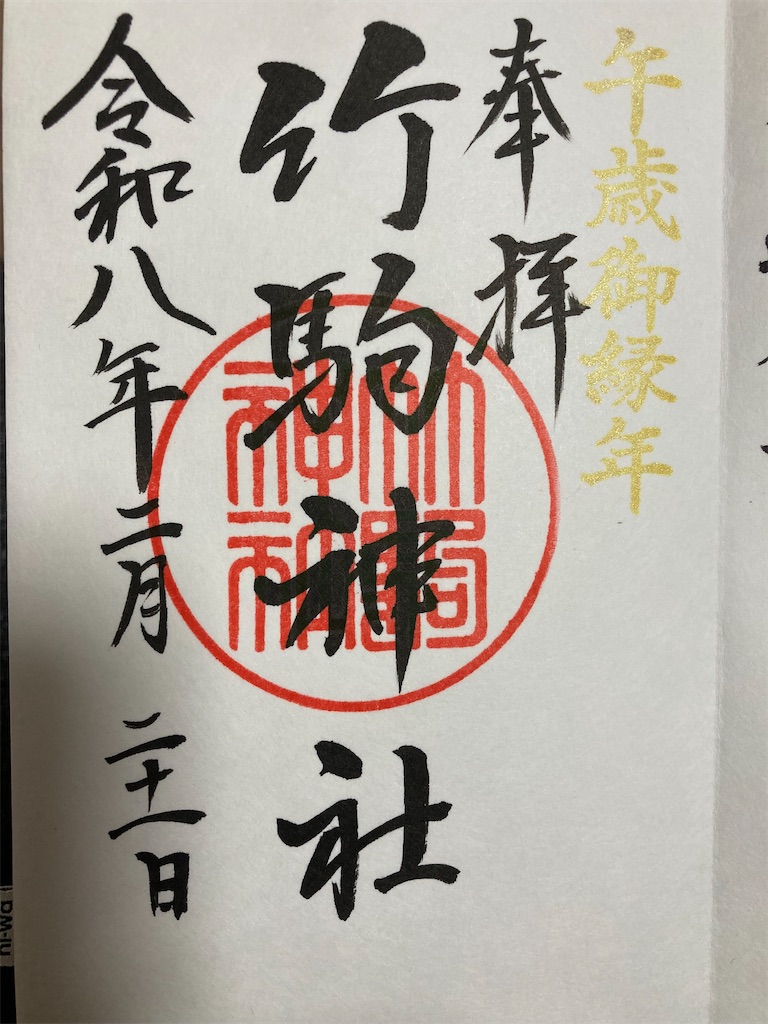 午歳御縁年
奉拝
竹駒神社
竹駒
神社
令和八年二月二十一日
ni-wa